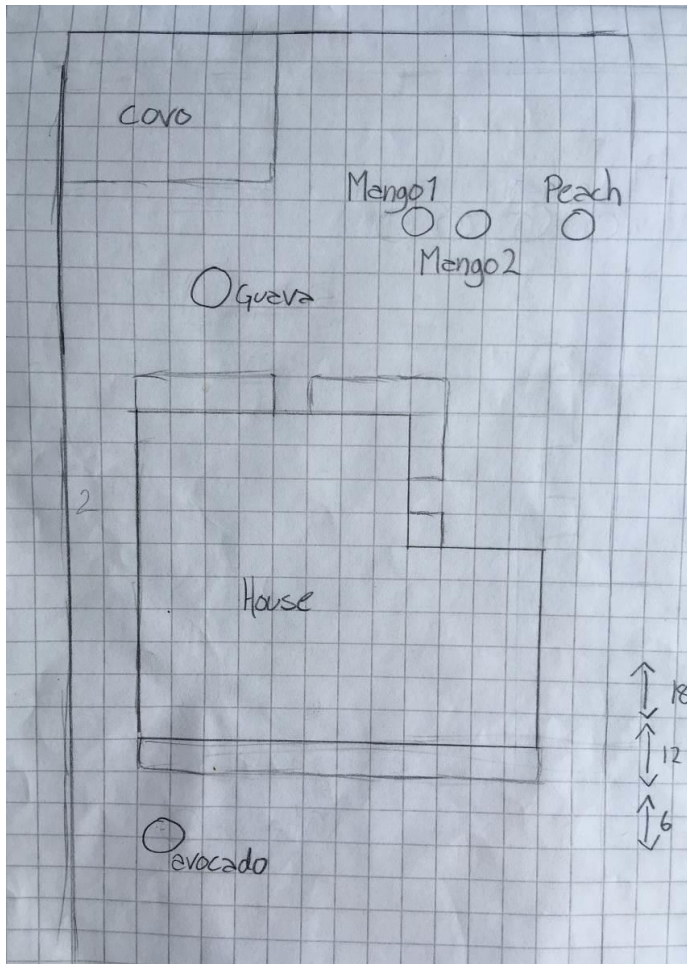 covo
Mango1
Peach
Mango2
Guava
2
House
18
12
6
avocado